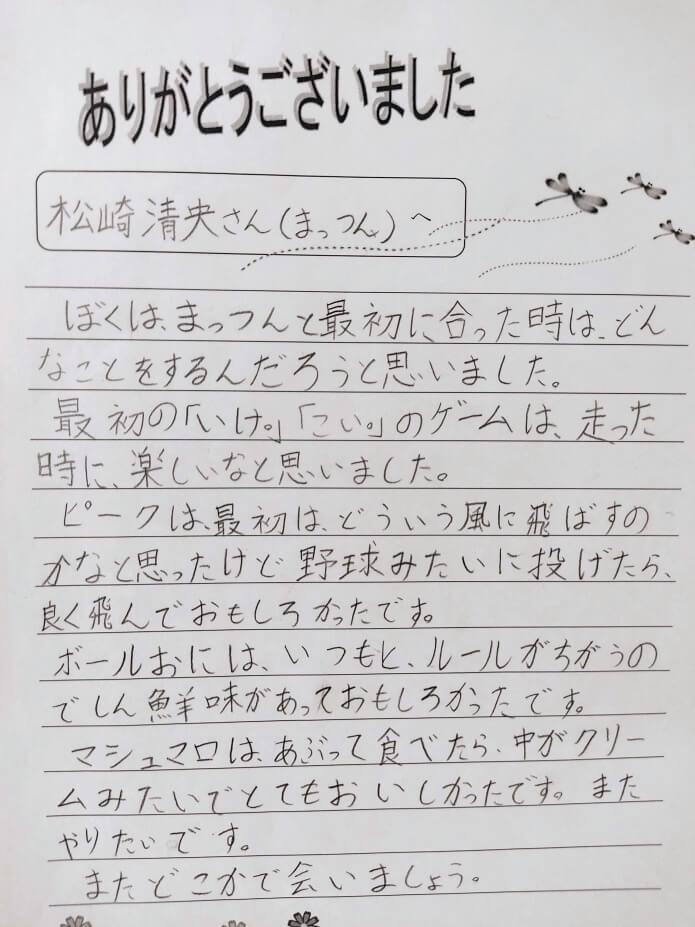 ありがとうございました
松崎清央さん(まっつん)へ
ぼくは、まっつんと最初に合った時は、どん
なことをするんだろうと思いました。
最初の「いけ。」「こい。」のゲームは、走った
時に、楽しいなと思いました。
ピークは、最初は、どういう風に飛ばすの
かなと思ったけど野球みたいに投げたら、
良く飛んでおもしろかったです。
ボールおには、いつもと、ルールがちがうの
でしん鮮味があっておもしろかったです。
マシュマロは、あぶって食べたら、中がクリー
ムみたいでとてもおいしかったです。また
やりたいです。
またどこかで会いましょう。